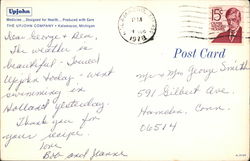 Upjohn
Medicines... Designed for Health... Produced with Care
THE UPJOHN COMPANY • Kalamazoo, Michigan
PM
1978
15¢
Post Card
Dear George & Dora,
The weather is
beautiful - Toured
Upjohn today - went
swimming in
Holland yesterday.
Thank you for
your recipe.
Love
Bob and Jeanne
Mr & Mrs George Smith
591 Gilbert Ave.
Hamden, Conn.
06514